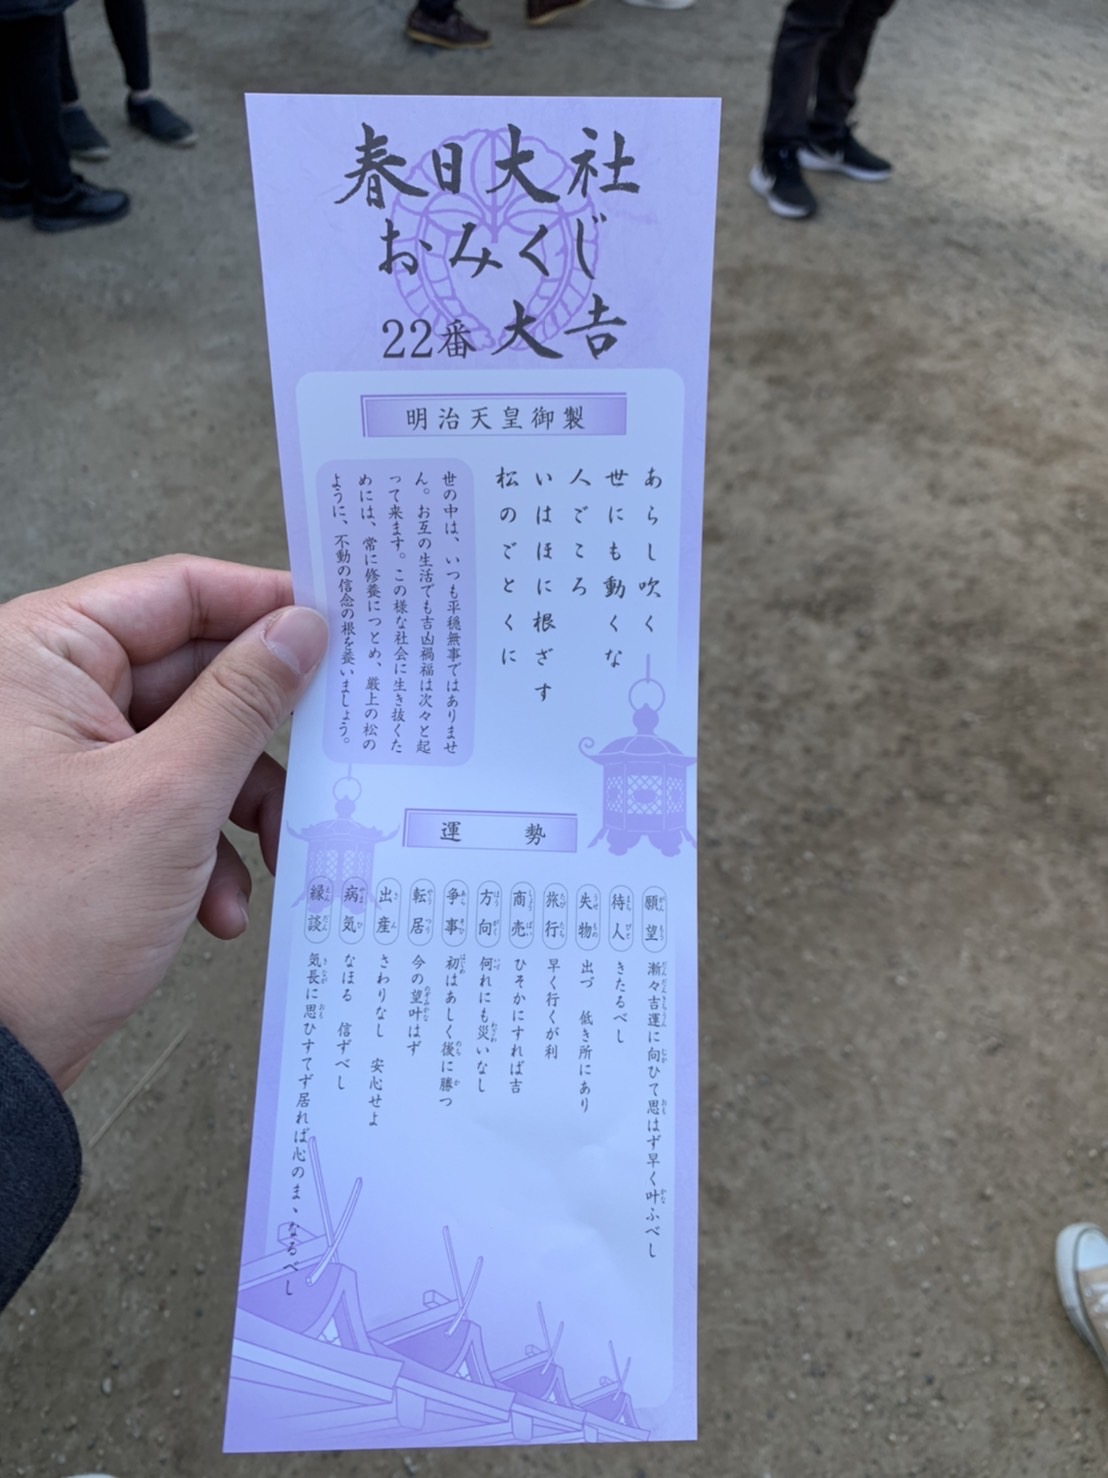 春日大社
おみくじ
22番 大吉
明治天皇御製
あらし吹く
世にも動くな
人ごころ
いはほに根ざす
松のごとくに
世の中は、いつも平穏無事ではありませ
ん。お互の生活でも吉凶禍福は次々と起
って来ます。この様な社会に生き抜くた
めには、常に修養につとめ、巌上の松の
ように、不動の信念の根を養いましょう。
運勢
願望 漸々吉運に向ひて思はず早く叶ふべし
待人 きたるべし
失物 出づ 低き所にあり
旅行 早く行くが利
商売 ひそかにすれば吉
方向 何れにも災いなし
争事 初はあしく後に勝つ
転居 今の望叶はず
出産 さわりなし 安心せよ
病気 なほる 信ずべし
縁談 気長に思ひすてず居れば心のまゝなるべし